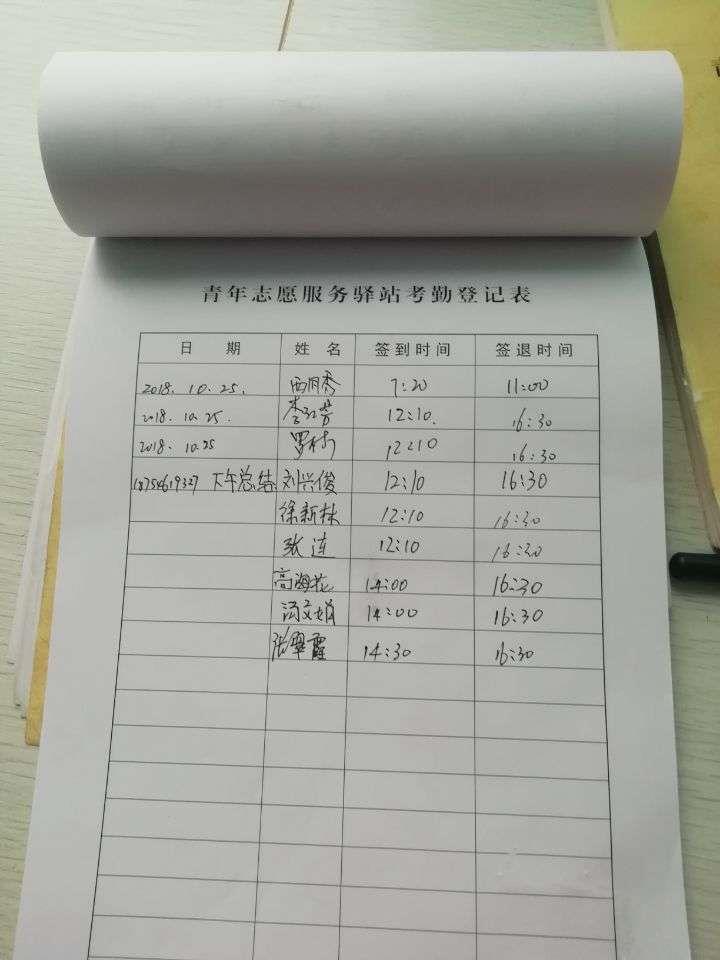 青年志愿服务驿站考勤登记表
日 期 姓 名 签到时间 签退时间
2018. 10. 25. 7:20 11:00
2018. 10.25. 李红芳 12:10. 16:30
2018. 10.25 罗 12:10 16:30
下午总结 刘兴俊 12:10 16:30
徐新林 12:10 16:30
张连 12:10 16:30
高海花 14:00 16:30
汤文娟 14:00 16:30
张翠霞 14:30 16:30